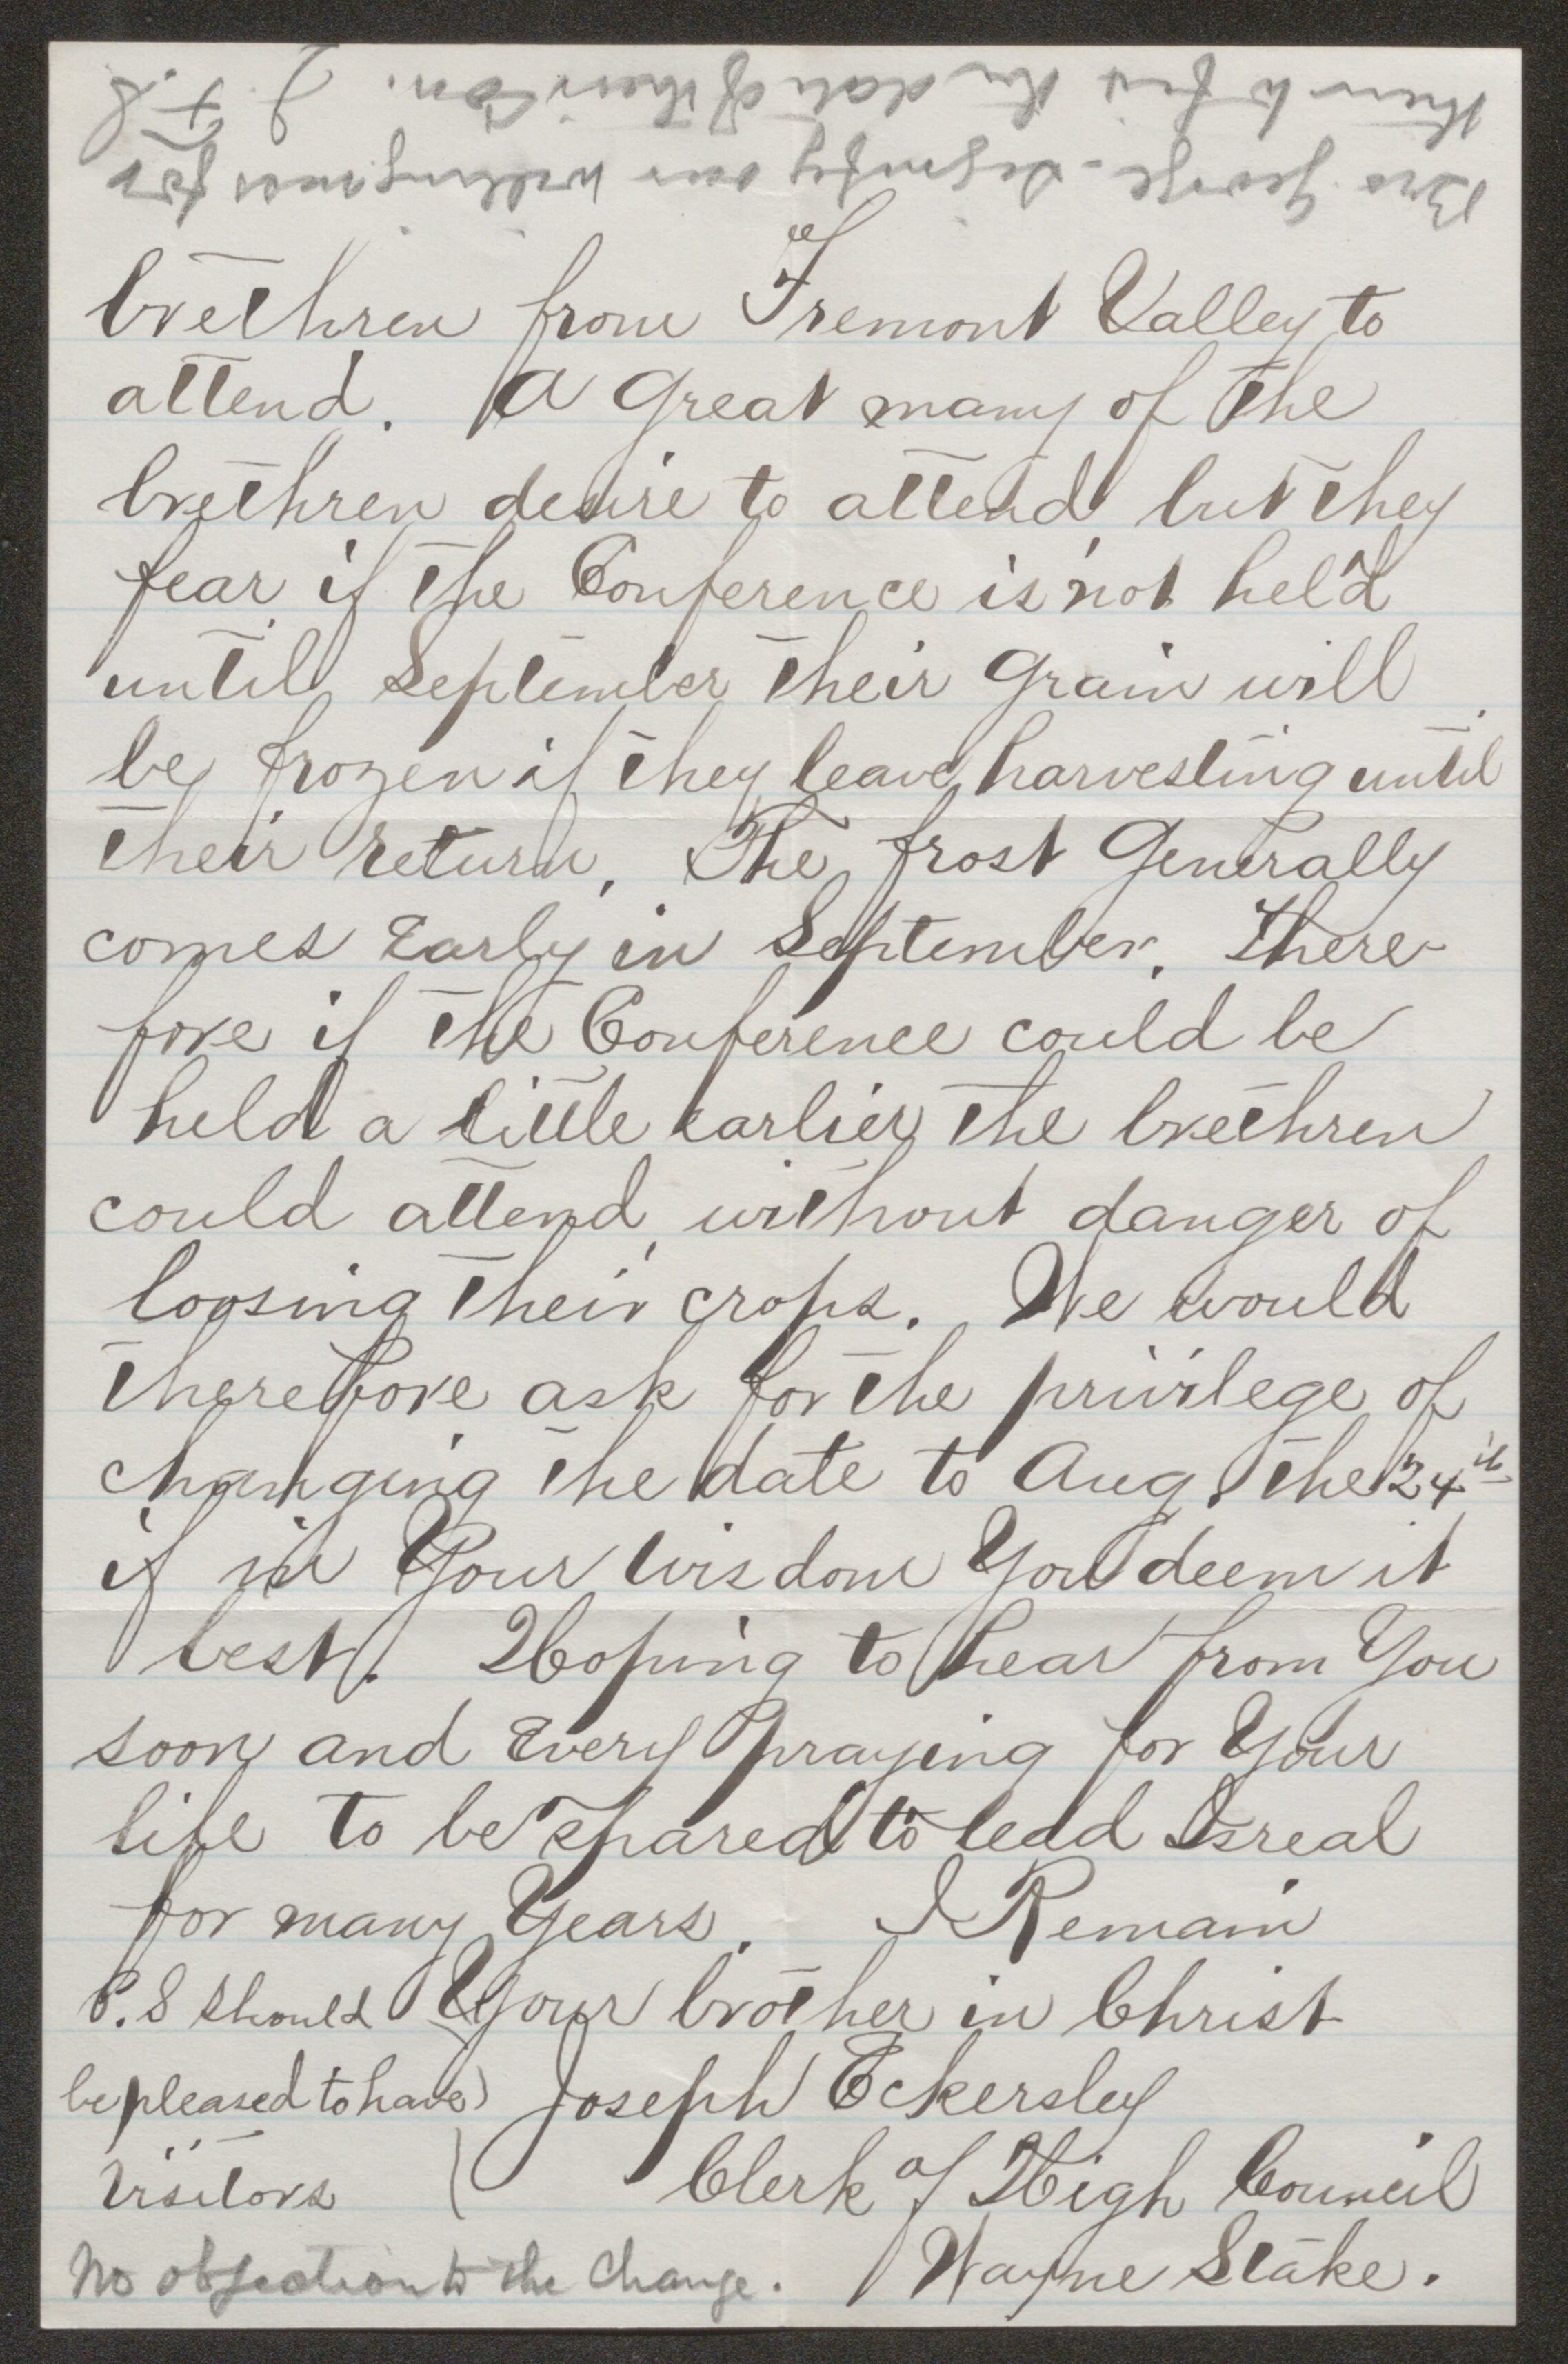 brethren from Fremont Valley to
attend. A great many of the
brethren desire to attend but they
fear if the Conference is not held
until September their grain will
be frozen if they leave harvesting until
their return, The frost Generally
comes Early in September. There-
fore if the Conference could be
held a little earlier the brethren
could attend without danger of
loosing their crops. We would
therefore ask for the privilege of
changing the date to Aug. the 24th
if in Your wisdom You deem it
best. Hoping to hear from You
soon and Every praying for Your
life to be spared to lead Isreal
for many Years. I Remain
Your brother in Christ
Joseph Eckersley
Clerk of High Council
Wayne Stake.
P.S Should
be pleased to have
Visitors
No objection to the change.
Bro George - Signify our willingness for
them to fix the date of their Con. J. F. S